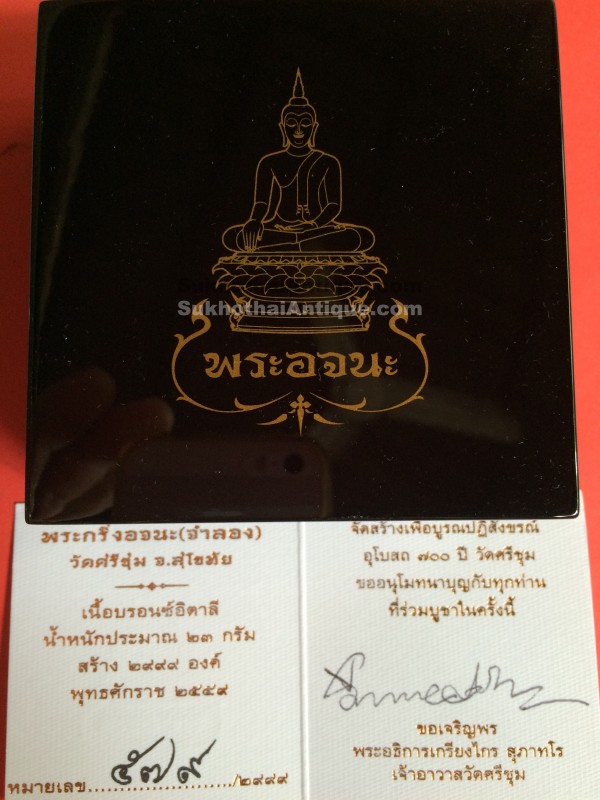 SukhothaiAntique.com
พระอจนะ
พระกริ่งอจนะ(จำลอง)
วัดศรีชุ่ม จ.สุโขทัย
เนื้อบรอนซ์อิตาลี
น้ำหนักประมาณ ๒๓ กรัม
สร้าง ๒๙๙๙ องค์
พุทธศักราช ๒๕๕๙
หมายเลข ๕๗๙ /๒๙๙๙
จัดสร้างเพื่อบูรณปฏิสังขรณ์
อุโบสถ ๗๐๐ ปี วัดศรีชุม
ขออนุโมทนาบุญกับทุกท่าน
ที่ร่วมบูชาในครั้งนี้
ขอเจริญพร
พระอธิการเกรียงไกร สุภาทโร
เจ้าอาวาสวัดศรีชุม